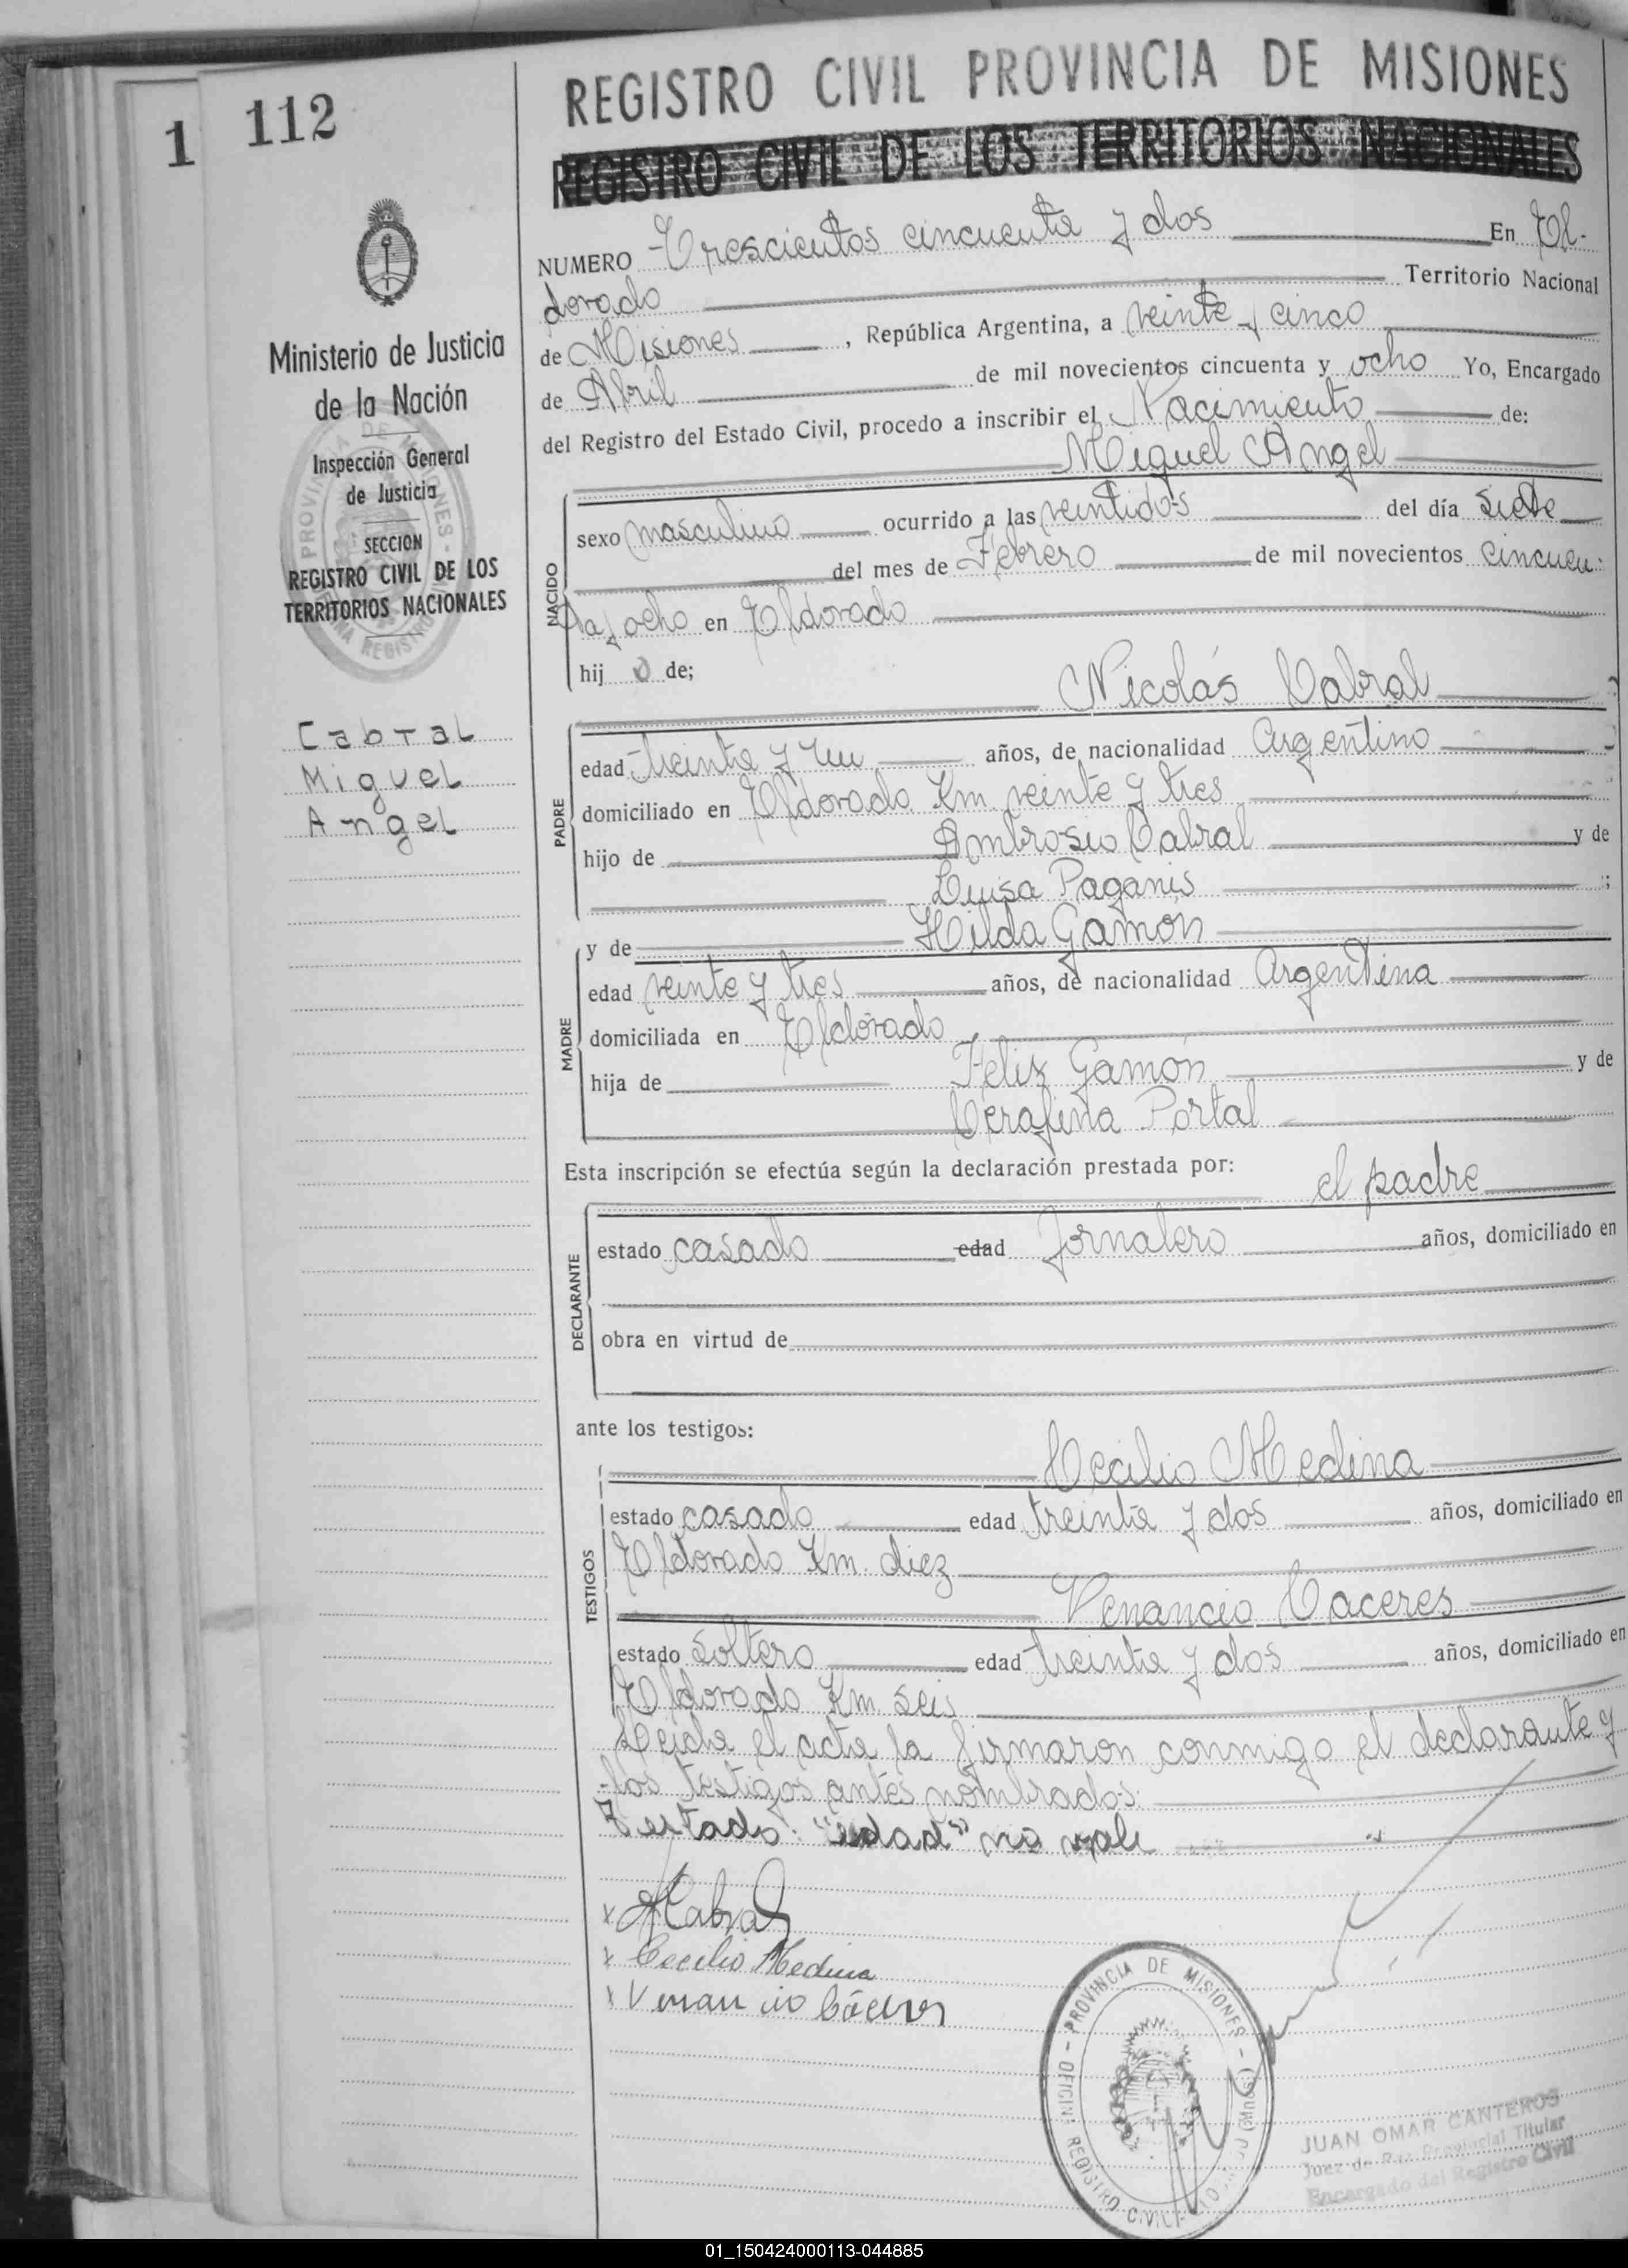 REGISTRO CIVIL PROVINCIA DE MISIONES
REGISTRO CIVIL DE LOS TERRITORIOS NACIONALES
1 112
Ministerio de Justicia
de la Nación
Inspección General
de Justicia
SECCION
REGISTRO CIVIL DE LOS
TERRITORIOS NACIONALES
Cabral
Miguel
Angel
NUMERO Trescientos cincuenta y dos En El-
dorado Territorio Nacional
de Misiones, República Argentina, a veinte y cinco
de Abril de mil novecientos cincuenta y ocho Yo, Encargado
del Registro del Estado Civil, procedo a inscribir el Nacimiento de:
Miguel Angel
NACIDO
sexo masculino ocurrido a las veintidos del día siete
del mes de Febrero de mil novecientos cincuen-
ta y ocho en Eldorado
hijo de;
Nicolás Cabral
PADRE
edad treinta y un años, de nacionalidad Argentino
domiciliado en Eldorado Km veinte y tres
hijo de Ambrosio Cabral y de
Luisa Paganis;
y de Hilda Gamón
MADRE
edad veinte y tres años, de nacionalidad Argentina
domiciliada en Eldorado
hija de Feliz Gamón y de
Cerafina Portal
Esta inscripción se efectúa según la declaración prestada por:
el padre
DECLARANTE
estado casado edad Jornalero años, domiciliado en
obra en virtud de
ante los testigos:
Cecilio Medina
TESTIGOS
estado casado edad treinta y dos años, domiciliado en
Eldorado Km. diez
Venancio Caceres
estado soltero edad treinta y dos años, domiciliado en
Eldorado Km. seis
Leida el acta la firmaron conmigo el declarante y
los testigos antes nombrados.
Testado: "edad" no vale
x Cabral
x Cecilio Medina
x Venancio Cáceres
PROVINCIA DE MISIONES
OFICINA REGISTRO CIVIL
JUAN OMAR CANTEROS
Juez de Paz Provincial Titular
Encargado del Registro Civil
01_150424000113-044885